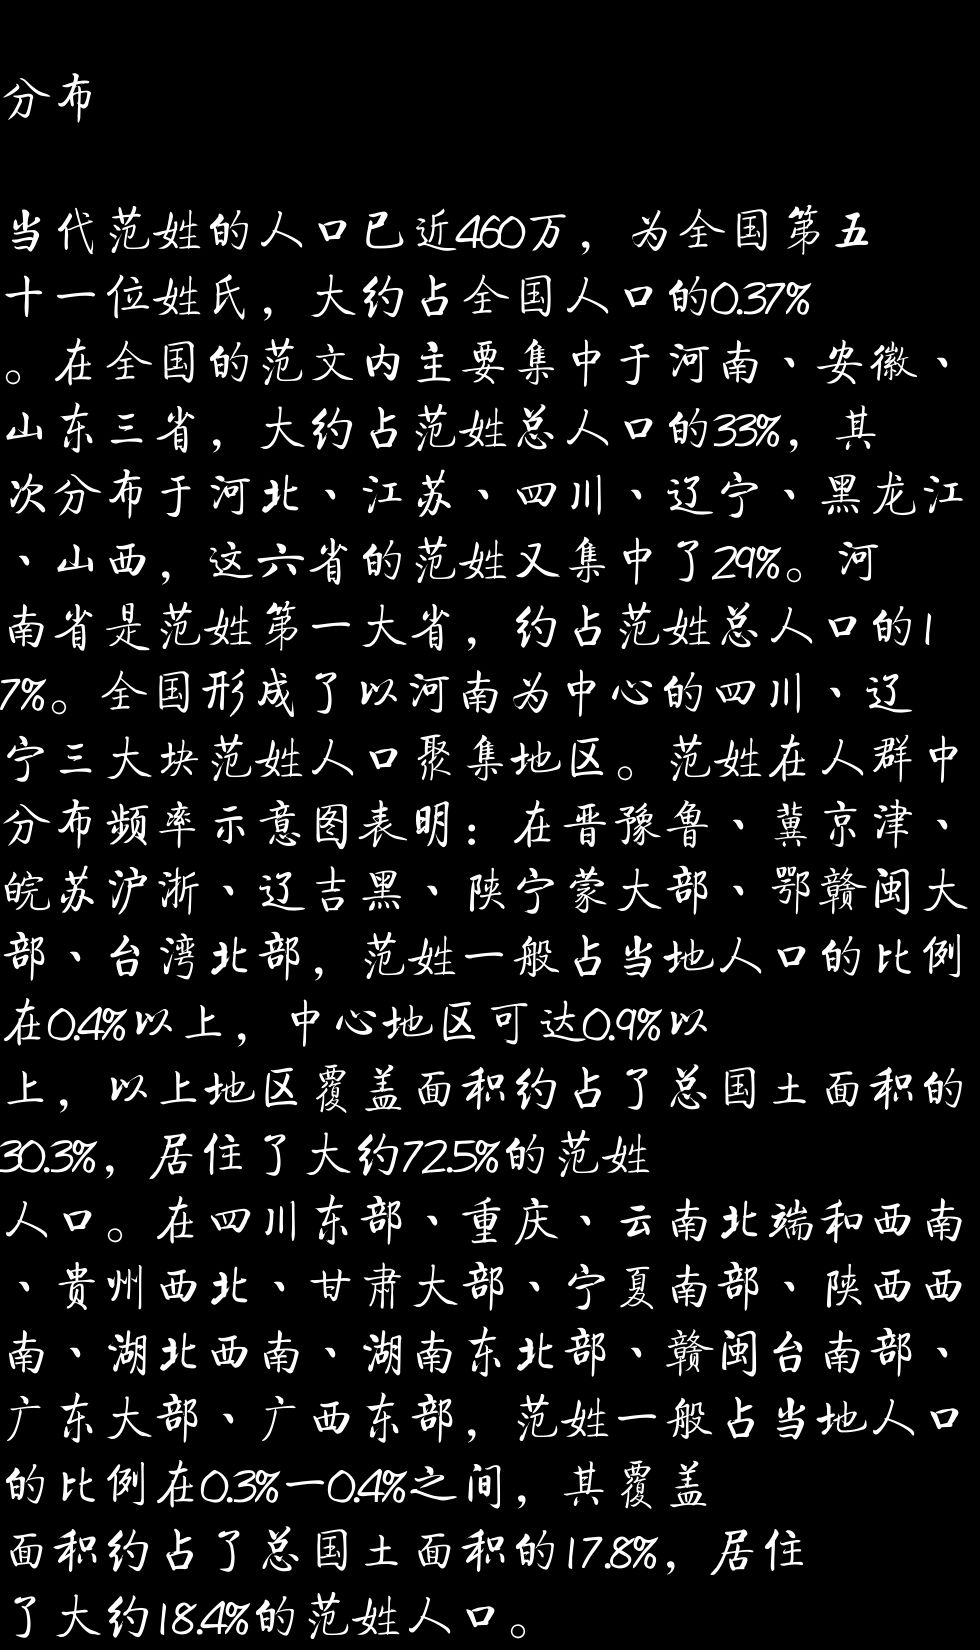 分布
当代范姓的人口已近460万，为全国第五
十一位姓氏，大约占全国人口的0.37%
。在全国的范文内主要集中于河南、安徽、
山东三省，大约占范姓总人口的33%，其
次分布于河北、江苏、四川、辽宁、黑龙江
、山西，这六省的范姓又集中了29%。河
南省是范姓第一大省，约占范姓总人口的1
7%。全国形成了以河南为中心的四川、辽
宁三大块范姓人口聚集地区。范姓在人群中
分布频率示意图表明：在晋豫鲁、冀京津、
皖苏沪浙、辽吉黑、陕宁蒙大部、鄂赣闽大
部、台湾北部，范姓一般占当地人口的比例
在0.4%以上，中心地区可达0.9%以
上，以上地区覆盖面积约占了总国土面积的
30.3%，居住了大约72.5%的范姓
人口。在四川东部、重庆、云南北端和西南
、贵州西北、甘肃大部、宁夏南部、陕西西
南、湖北西南、湖南东北部、赣闽台南部、
广东大部、广西东部，范姓一般占当地人口
的比例在0.3%—0.4%之间，其覆盖
面积约占了总国土面积的17.8%，居住
了大约18.4%的范姓人口。